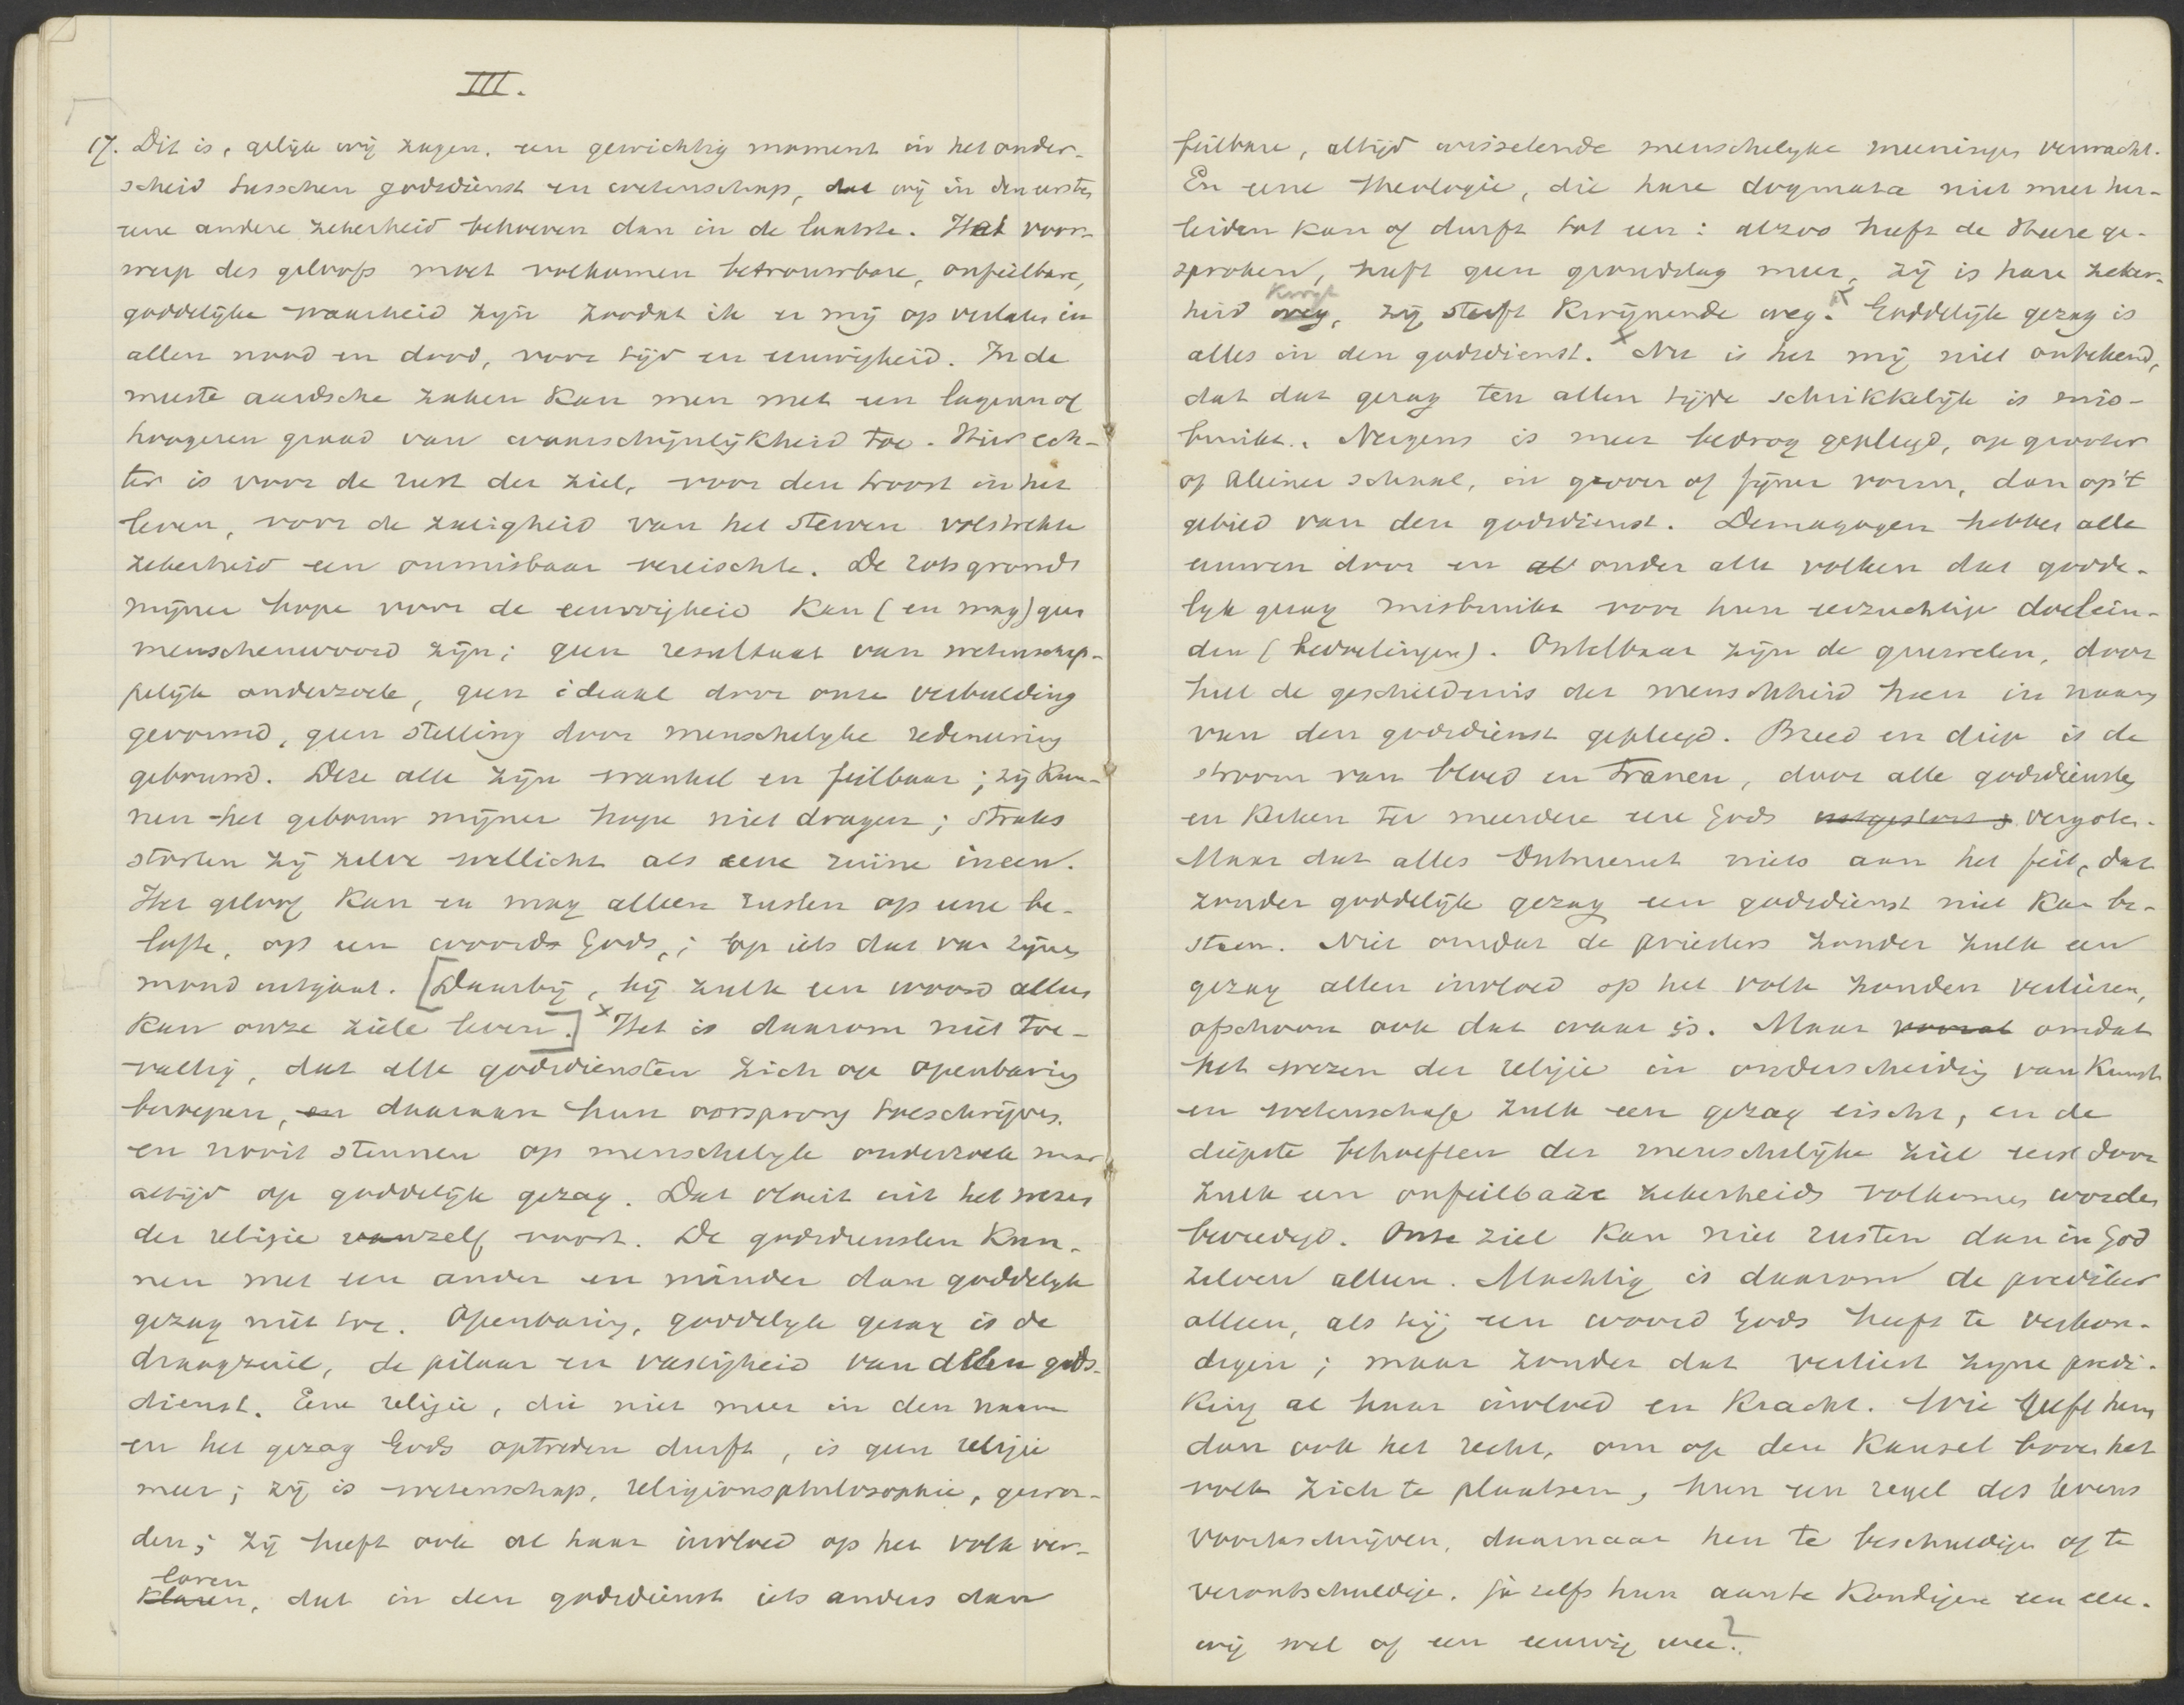 III.
17. Dit is, gelijk wij zagen, een gewichtig moment in het onder-
scheid tusschen godsdienst en wetenschap, dat wij in den eersten
eene andere zekerheid behoeven dan in de laatste. Het voor-
werp des geloofs moet volkomen betrouwbare, onfeilbare,
goddelijke waarheid zijn zoodat ik er mij op verlaten in
allen nood en dood, voor tijd en eeuwigheid. In de
meeste aardsche zaken kan men met een lageren of
hoogeren graad van waarschijnlijkheid toe. Hier ech-
ter is voor de rust der ziel, voor den troost in het
leven, voor de zaligheid van het sterven volstrekte
zekerheid een onmisbaar vereischte. De rotsgrond
mijner hope voor de eeuwigheid kan (en mag) geen
menschenwoord zijn; geen resultaat van wetenschap-
pelijk onderzoek, geen ideaal door onze verbeelding
gevormd, geen stelling door menschelyke redeneering
gebouwd. Deze alle zijn wankel en feilbaar; zij kun-
nen het gebouw mijner hope niet dragen; straks
storten zij zelve wellicht als eene ruïne ineen.
Het geloof kan en mag alleen rusten op eene be-
lofte, op een woord Gods, ; op iets dat van zijnen
mond uitgaat. [Daarbij, bij zulk een woord alleen
kan onze ziele leven.] x Het is daarom niet toe-
vallig, dat alle godsdiensten zich op openbaring
beroepen, en daaraan hun oorsprong toeschrijven.
en nooit steunen op menschelyk onderzoek maar
altijd op goddelijk gezag. Dat vloeit uit het wezen
der religie vanzelf voort. De godsdiensten kun-
nen met een ander en minder dan goddelyk
gezag niet toe. Openbaring, goddelyk gezag is de
draagzuil, de pilaar en vastigheid van allen gods-
dienst. Eene religie, die niet meer in den naam
en het gezag Gods optreden durft, is geen religie
meer; zij is wetenschap, religionsphilosophie, gewor-
den; zij heeft ook al haar invloed op het volk ver-
loren
klaren, dat in den godsdienst iets anders dan
feilbare, altijd wisselende menschelyke meeningen verwacht.
En eene theologie, die hare dogmata niet meer her-
leiden kan of durft tot een: alzoo heeft de Heere ge-
sproken, heeft geen grondslag meer, zij is hare zeker-
heid kwijt
weg, zij sterft kwijnende weg. x Goddelijk gezag is
alles in den godsdienst. x Nu is het mij niet onbekend,
dat dat gezag ten allen tijde schrikkelijk is mis-
bruikt. Nergens is meer bedrog gepleegd, op grooter
of kleiner schaal, in grover of fijner vorm, dan op 't
gebied van den godsdienst. Demagogen hebben alle
eeuwen door en al onder alle volken dat godde-
lyk gezag misbruikt voor hun eerzuchtige doelein-
den (bedoelingen). Ontelbaar zijn de gruwelen, door
heel de geschiedenis der menschheid heen in naam
van den godsdienst gepleegd. Breed en diep is de
stroom van bloed en tranen, door alle godsdiensten
en kerken ter meerdere eere Gods uitgestort s vergoten.
Maar dat alles ontneemt niets aan het feit, dat
zonder goddelijk gezag een godsdienst niet kan be-
staan. Niet omdat de priesters zonder zulk een
gezag allen invloed op het volk zouden verliezen,
ofschoon ook dat waar is. Maar vooral omdat
het wezen der religie in onderscheiding van kunst
en wetenschap zulk een gezag eischt, en de
diepste behoeften der menschelijke ziel eerst door
zulk een onfeilbare zekerheid volkomen worden
bevredigd. Onze ziel kan niet rusten dan in God
zelven alleen. Machtig is daarom de prediker
alleen, als hij een woord Gods heeft te verkon-
digen; maar zonder dat verliest zyne predi-
king al haar invloed en kracht. Wie geeft hem
dan ook het recht, om op den kansel boven het
volk zich te plaatsen, hun een regel des levens
voorteschrijven, daarnaar hen te beschuldigen of te
verontschuldigen. ja zelfs hun aan te kondigen een eeu-
wig wel of een eeuwig wee?